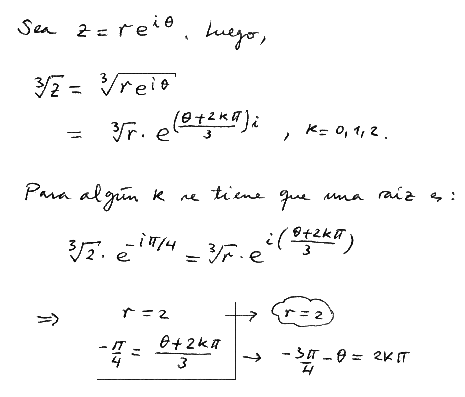 Sea z = r e^{iθ}. Luego,
∛z = ∛(r e^{iθ})
= ∛r · e^{((θ+2kπ)/3)i} , k = 0, 1, 2.
Para algún k se tiene que una raíz es:
∛2 · e^{-iπ/4} = ∛r · e^{i((θ+2kπ)/3)}
⇒ r = 2 → r = 2
-π/4 = (θ+2kπ)/3 → -3π/4 - θ = 2kπ